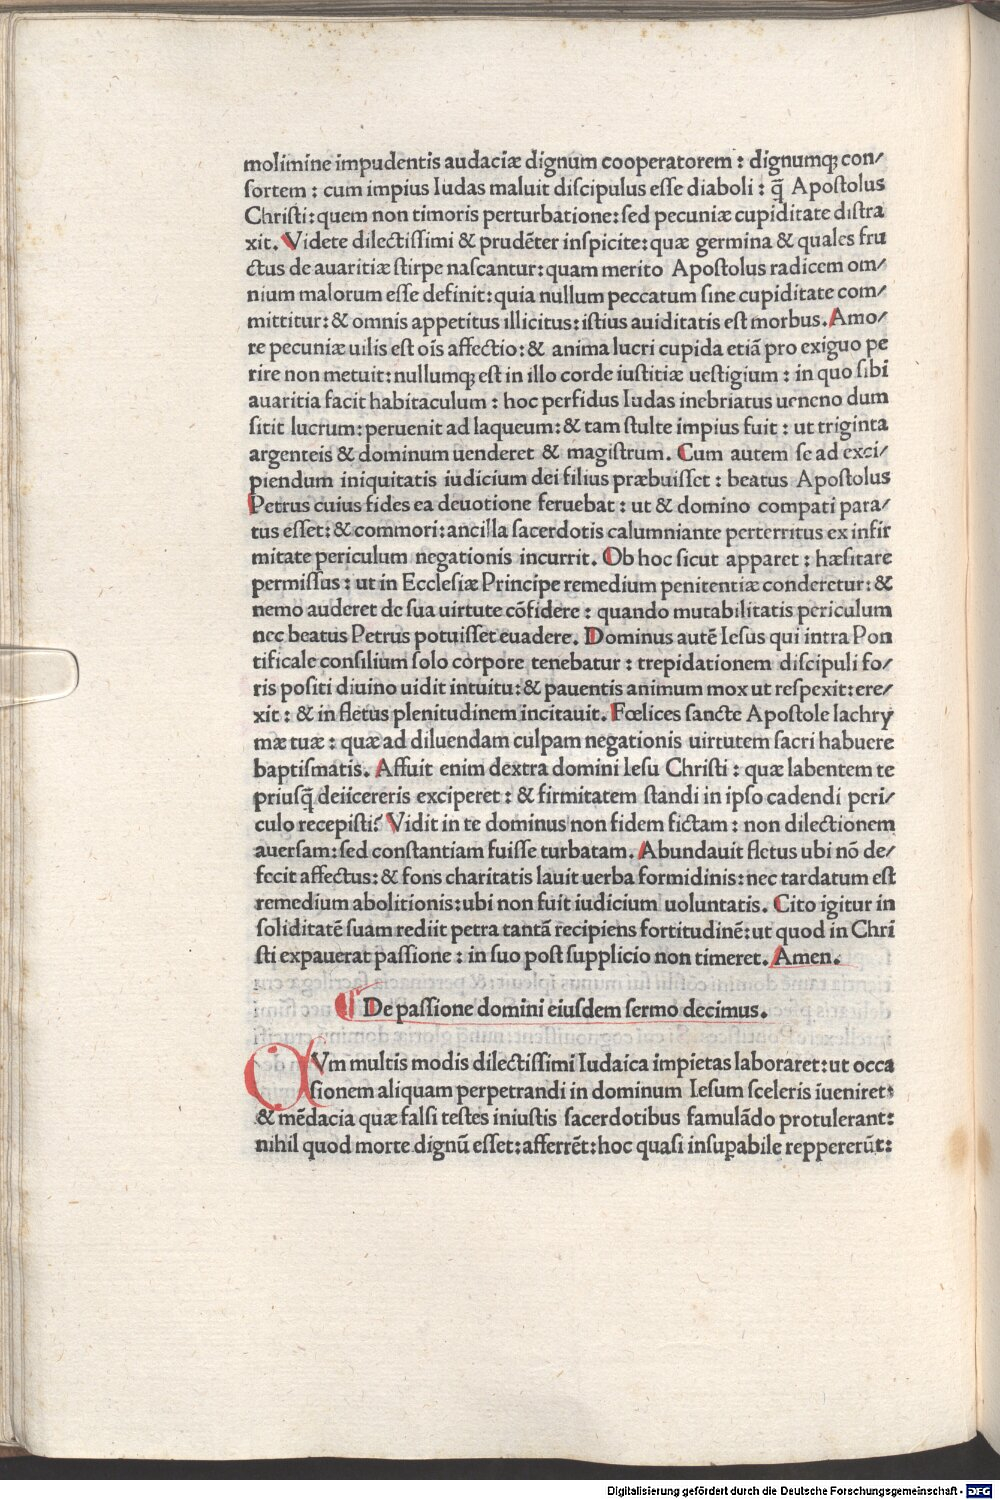 molimine impudentis audaciæ dignum cooperatorem : dignumq; con/
ſortem : cum impius Iudas maluit diſcipulus eſſe diaboli : q̃ Apoſtolus
Chriſti : quem non timoris perturbatione : ſed pecuniæ cupiditate diſtra
xit. Videte dilectiſſimi & prudẽter inſpicite : quæ germina & quales fru
ctus de auaritiæ ſtirpe naſcantur : quam merito Apoſtolus radicem om/
nium malorum eſſe definit : quia nullum peccatum ſine cupiditate com/
mittitur : & omnis appetitus illicitus : iſtius auiditatis eſt morbus. Amo/
re pecuniæ uilis eſt oĩs affectio : & anima lucri cupida etiã pro exiguo pe
rire non metuit : nullumq; eſt in illo corde iuſtitiæ ueſtigium : in quo ſibi
auaritia facit habitaculum : hoc perfidus Iudas inebriatus ueneno dum
ſitit lucrum : peruenit ad laqueum : & tam ſtulte impius fuit : ut triginta
argenteis & dominum uenderet & magiſtrum. Cum autem ſe ad exci/
piendum iniquitatis iudicium dei filius præbuiſſet : beatus Apoſtolus
Petrus cuius fides ea deuotione feruebat : ut & domino compati para/
tus eſſet : & commori : ancilla ſacerdotis calumniante perterritus ex infir
mitate periculum negationis incurrit. Ob hoc ſicut apparet : hæſitare
permiſſus : ut in Eccleſiæ Principe remedium penitentiæ conderetur : &
nemo auderet de ſua uirtute cõfidere : quando mutabilitatis periculum
nec beatus Petrus potuiſſet euadere. Dominus autẽ Ieſus qui intra Pon
tificale conſilium ſolo corpore tenebatur : trepidationem diſcipuli fo/
ris poſiti diuino uidit intuitu : & pauentis animum mox ut reſpexit : ere/
xit : & in fletus plenitudinem incitauit. Fœlices ſancte Apoſtole lachry
mæ tuæ : quæ ad diluendam culpam negationis uirtutem ſacri habuere
baptiſmatis. Affuit enim dextra domini Ieſu Chriſti : quæ labentem te
priuſq̃ deiicereris exciperet : & firmitatem ſtandi in ipſo cadendi peri/
culo recepiſti? Vidit in te dominus non fidem fictam : non dilectionem
auerſam : ſed conſtantiam fuiſſe turbatam. Abundauit fletus ubi nõ de/
fecit affectus : & fons charitatis lauit uerba formidinis : nec tardatum eſt
remedium abolitionis : ubi non fuit iudicium uoluntatis. Cito igitur in
ſoliditatẽ ſuam rediit petra tantã recipiens fortitudinẽ : ut quod in Chri
ſti expauerat paſſione : in ſuo poſt ſupplicio non timeret. Amen.
De paſſione domini eiuſdem ſermo decimus.
CVm multis modis dilectiſſimi Iudaica impietas laboraret : ut occa
ſionem aliquam perpetrandi in dominum Ieſum ſceleris iueniret :
& mẽdacia quæ falſi teſtes iniuſtis ſacerdotibus famulãdo protulerant :
nihil quod morte dignũ eſſet : afferrẽt : hoc quaſi inſuꝑabile reppererũt :
Digitalisierung gefördert durch die Deutsche Forschungsgemeinschaft - DFG